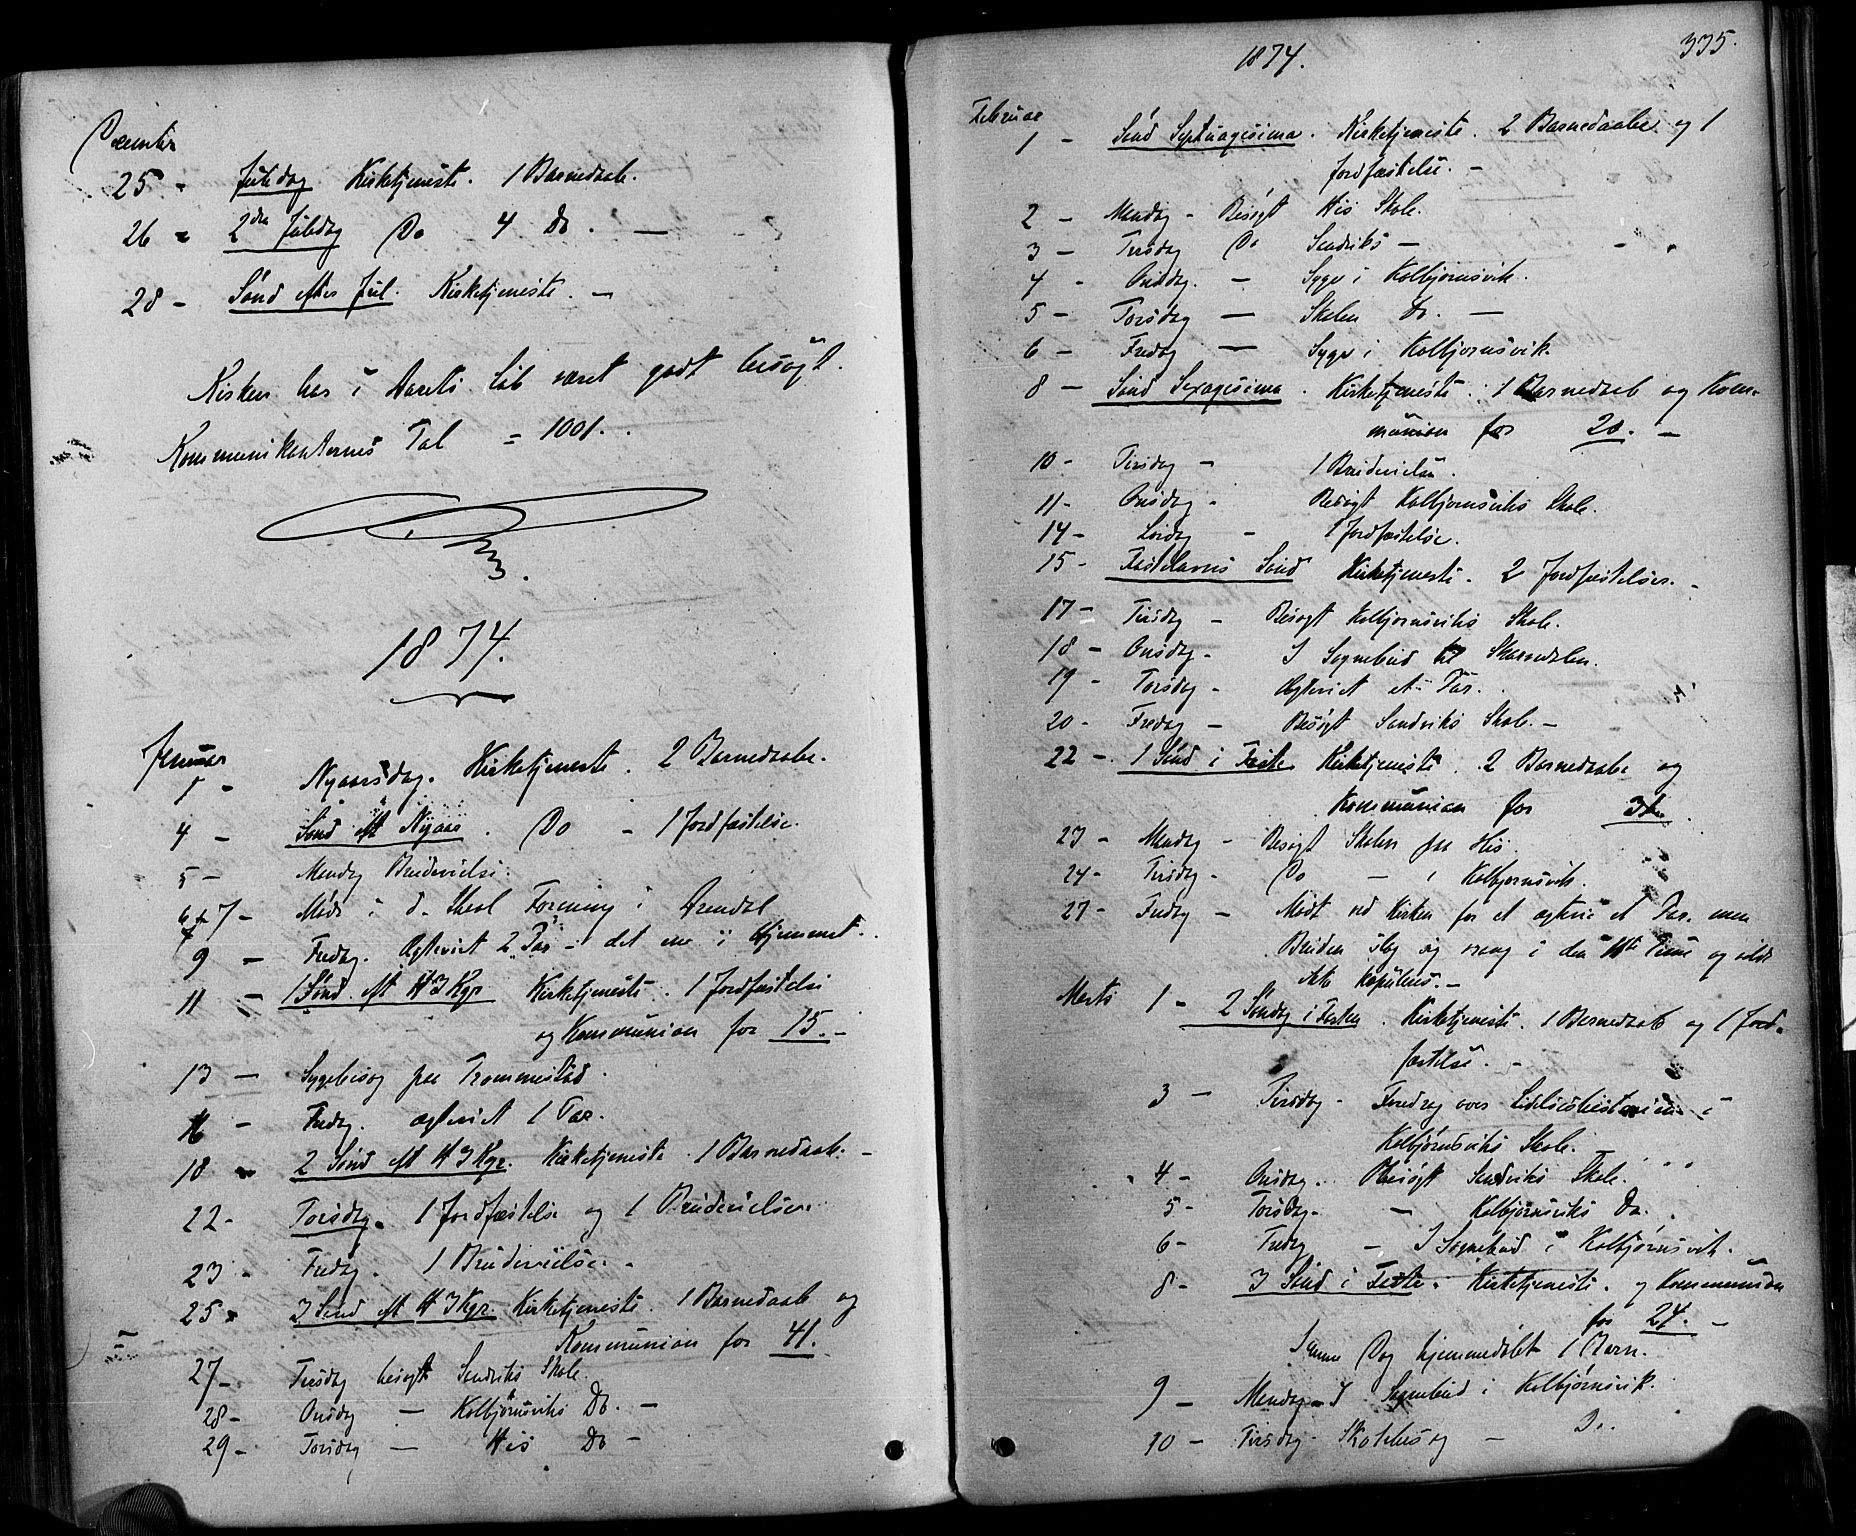 December
25 - Juledag Kirketjeneste. 1 Barnedaab.
26 - 2den Juledag Do 4 Do. -
28 - Sønd efter Jul. Kirketjeneste. -
Kirken har i Aarets Løb været godt besøgt.
Kommunikanternes Tal = 1001.
1874.
Januar
1 - Nyaarsdag. Kirketjeneste. 2 Barnedaabe.
4 - Sønd eft Nyaar. Do - 1 Jordfæstelse.
5 - Mandag Brudevielse.
6 & 7 - Møde i d. theol Forening i Arendal
9 - Fredag. Ægteviet 2 Par - det ene i Hjemmet.
11 - 1 Sønd eft H 3 Kgr Kirketjeneste. 1 Jordfæstelse
og Kommunion for 15. -
13 - Sygebesøg paa Trommestad.
16 - Fredag. ægteviet 1 Par.
18 - 2 Sønd eft H 3 Kgr. Kirketjeneste. 1 Barnedaab. -
22 - Torsdag. 1 Jordfæstelse og 1 Brudevielse.
23 - Fredag. 1 Brudevielse. -
25 - 3 Sønd eft H 3 Kgr. Kirketjeneste. 1 Barnedaab og
Kommunion for 41.
27 - Tirsdag besøgt Sandviks Skole.
28 - Onsdag - Kolbjørnsviks Do. -
29 - Torsdag - His Do -
335.
1874.
Februar
1 - Sønd Septuagesima. Kirketjeneste. 2 Barnedaabe og 1
Jordfæstelse. -
2 - Mandag - Besøgt His Skole.
3 - Tirsdag Do Sandviks -
4 - Onsdag. - Syge i Kolbjørnsvik.
5 - Torsdag - Skolen Do. -
6 - Fredag - Syge i Kolbjørnsvik.
8 - Sønd Sexagesima. Kirketjeneste. 1 Barnedaab og Kom-
munion for 20. -
10 - Tirsdag - 1 Brudevielse.
11 - Onsdag - Besøgt Kolbjørnsviks Skole.
14 - Lørdag - 1 Jordfæstelse.
15 - Fastelavns Sønd Kirketjeneste. 2 Jordfæstelser. -
17 - Tirsdag - Besøgt Kolbjørnsviks Skole.
18 - Onsdag - I Sognebud til
19 - Torsdag - Ægteviet et Par.
20 - Fredag - Besøgt Sandviks Skole. -
22 - 1 Sønd i Faste Kirketjeneste. 2 Barnedaabe og
Kommunion for
23 - Mandag - Besøgt Skolen paa His.
24 - Tirsdag - Do - i Kolbjørnsvik.
27 - Fredag - Mødt ved Kirken for at ægtevie et Par, men
Bruden slog sig vrang i den 11te Time og vilde
ikke kopuleres. -
Marts 1 - 2 Søndag i Fasten. Kirketjeneste. 1 Barnedaab og 1 Jord-
fæstelse. -
3 - Tirsdag - Foredrag over Lidelseshistorien i
Kolbjørnsviks Skole.
4 - Onsdag. Besøgt Sandviks Skole.
5 - Torsdag - - Kolbjørnsviks Do.
6 - Fredag - I Sognebud i Kolbjørnsvik.
8 - 3 Sønd i Faste. Kirketjeneste. og Kommunion
for 24. -
Samme Dag hjemmedøbt 1 Barn.
9 - Mandag - I Sognebud i Kolbjørnsvik.
10 - Tirsdag - Skolebesøg - Do.